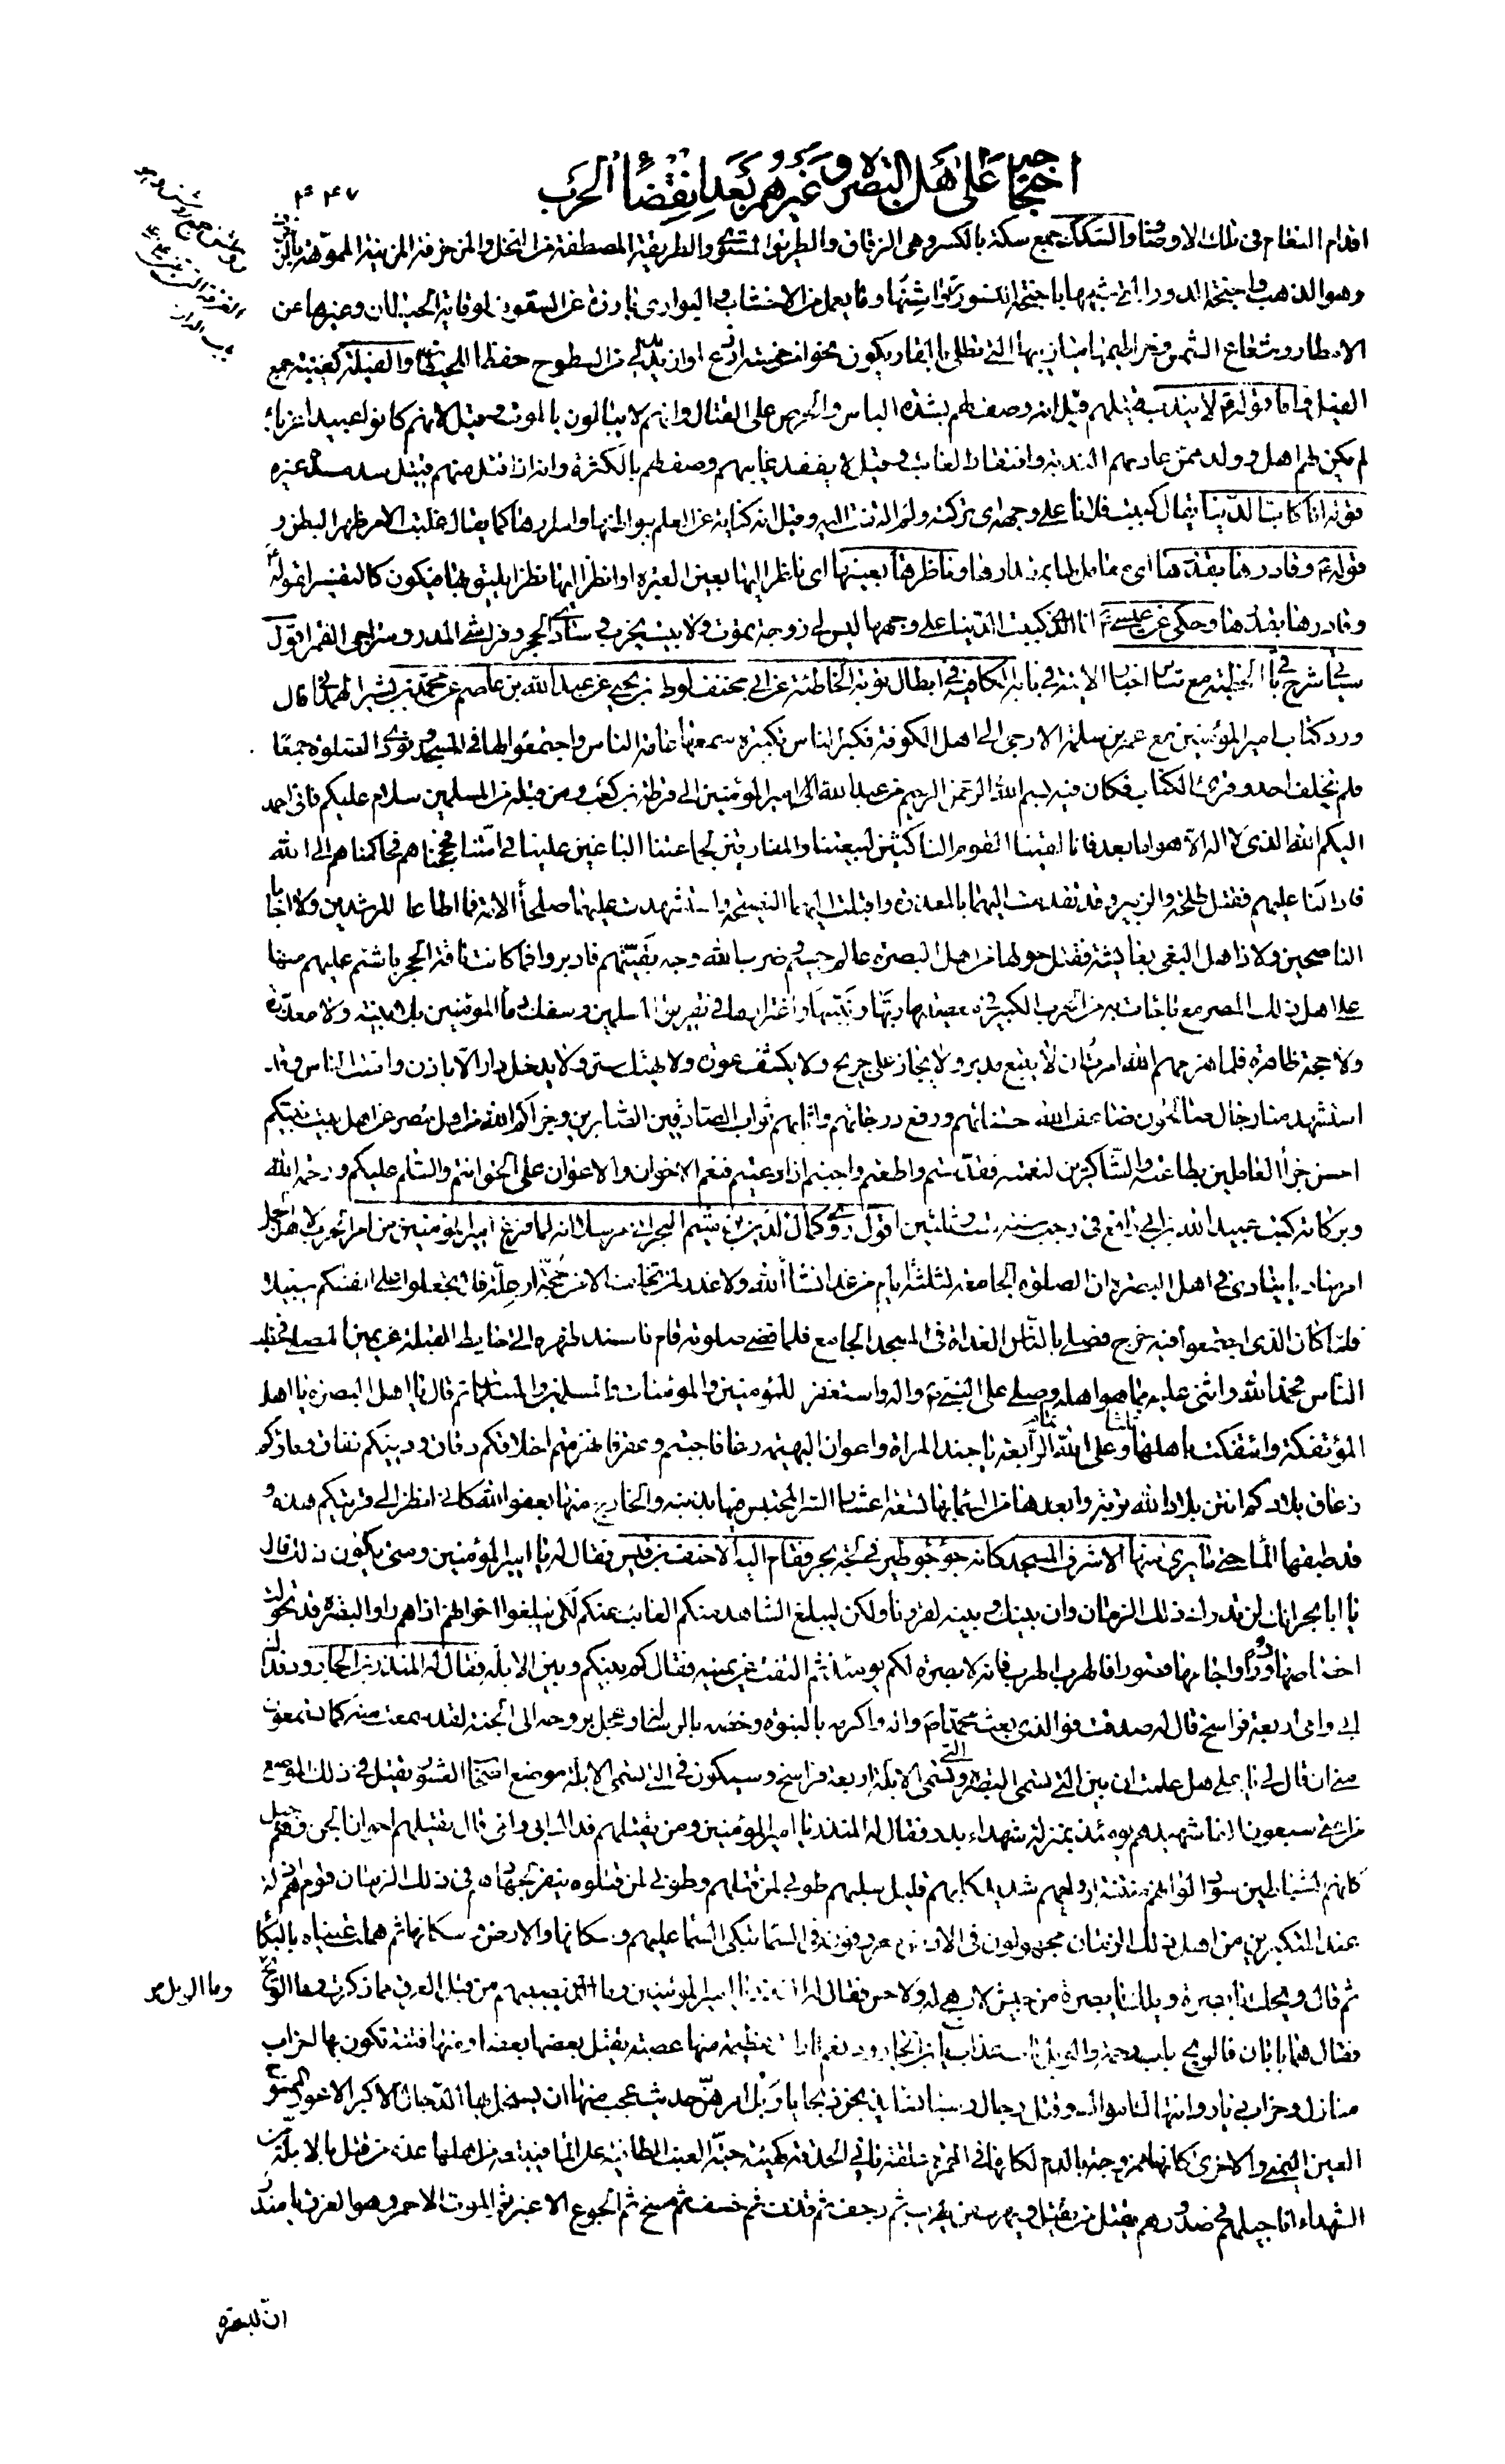 احتجاجه على اهل البصرة وغيرهم بعد انقضاء الحرب
۴۴۷
اقدام النعام في تلك الاوصاف والسكك جمع سكة بالكسر وهي الزقاق والطريق المستوي والطريقة المصطفة من النخل والمزخرفة المزينة المموهة بالزخرف
وهو الذهب واجنحة الدور التي شبهها باجنحة النسور رواشنها وما يعمل من الاخشاب والبواري بارزة عن السقوف لوقاية الحيطان وغيرها عن
الامطار وشعاع الشمس وخراطيمها ميازيبها التي تطلى بالقار يكون نحوا من خمسة اذرع او ازيد تدلى من السطوح حفظا للحيطان والفيلة كعنبة جمع
الفيل واما قوله لا يندب قتيلهم قيل انه وصف لهم بشدة الباس والحرص على القتال وانهم لا يبالون بالموت وقيل لانهم كانوا عبيدا غرباء
لم يكن لهم اهل وولد ممن عادتهم الندبة وافتقاد الغائب وقيل لا يفقد غائبهم وصف لهم بالكثرة وانه اذا قتل منهم قتيل سد مسده غيره
قوله انا كاب الدنيا يقال كببت فلانا على وجهه اي تركته ولم التفت اليه وقيل انه كناية عن العلم ببواطنها واسرارها كما يقال غلبت الامر ظهرا لبطن و
قوله وقادرها بقدرها اي معامل لها بمقدارها وناظرها بعينها اي ناظر اليها بعين العبرة او انظر اليها نظرا يليق بها فيكون كالتفسير لقوله
وقادرها بقدرها وحكي عن عيسى انا الذي كببت الدنيا على وجهها ليس لي زوجة تموت ولا بيت يخرب وسادي الحجر وفراشي المدر وسراجي القمر اقول
سياتي شرح باقي الخطبة مع سائر اخبار الاتية في بابه الكافية في ابطال توبة الخاطئة عن ابي مخنف لوط بن يحيى عن عبد الله بن عاصم عن محمد بن بشير الهمداني قال
ورد كتاب امير المؤمنين مع عمر بن سلمة الارحبي الى اهل الكوفة فكبر الناس تكبيرة سمعها عامة الناس واجتمعوا لها في المسجد ونودي الصلوة جمعا
فلم يتخلف احد وقرئ الكتاب فكان فيه بسم الله الرحمن الرحيم من عبد الله امير المؤمنين الى قرظة بن كعب ومن قبله من المسلمين سلام عليكم فاني احمد
اليكم الله الذي لا اله الا هو اما بعد فانا لقينا القوم الناكثين لبيعتنا والمفارقين لجماعتنا الباغين علينا في امتنا فحججناهم فحاكمناهم الى الله
فادالنا عليهم فقتل طلحة والزبير وقد تقدمت اليهما بالمعذرة واقبلت اليهما النصيحة واستشهدت عليهما صلحاء الامة فما اطاعا المرشدين ولا اجابا
الناصحين ولاذ اهل البغي بعايشة فقتل حولها من اهل البصرة عالم جم وضرب الله وجه بقيتهم فادبروا فما كانت ناقة الحجر باشئم عليهم منها
على اهل ذلك المصر مع ما جاءت به من الحوب الكبير في معصيتها ربها ونبيها واغترارها في تفريق المسلمين وسفك دماء المؤمنين بلا بينة ولا معذرة
ولا حجة ظاهرة فلما هزمهم الله امرت ان لا يتبع مدبر ولا يجاز على جريح ولا يكشف عورة ولا يهتك ستر ولا يدخل دار الا باذن وامنت الناس وقد
استشهد منا رجال صالحون ضاعف الله حسناتهم ورفع درجاتهم واثابهم ثواب الصادقين الصابرين وجزاكم الله من اهل مصر عن اهل بيت نبيكم
احسن جزاء العاملين بطاعته والشاكرين لنعمته فقد سمعتم واطعتم واجبتم اذا دعيتم فنعم الاخوان والاعوان على الحق انتم والسلام عليكم ورحمة الله
وبركاته كتب عبيد الله بن ابي رافع في رجب سنة ست وثلثين اقول روى كمال الدين بن ميثم البحراني مرسلا انه لما فرغ امير المؤمنين من امر الحرب لاهل الجمل
امر مناديا ينادي في اهل البصرة ان الصلوة الجامعة لثلثة ايام من غد انشاء الله ولا عذر لمن تخلف الا من حجة او علة فلا تجعلوا على انفسكم سبيلا
فلما كان الذي اجتمعوا فيه خرج فصلى بالناس الغداة في المسجد الجامع فلما قضى صلوته قام فاسند ظهره الى حايط القبلة عن يمين المصلى فخطب
الناس فحمد الله واثنى عليه بما هو اهله وصلى على النبي واله واستغفر للمؤمنين والمؤمنات والمسلمين والمسلمات ثم قال يا اهل البصرة يا اهل
المؤتفكة وائتفكت باهلها ثلاثا وعلى الله تمام الرابعة يا جند المراة واعوان البهيمة رغا فاجبتم وعقر فانهزمتم اخلاقكم دقاق ودينكم نفاق وماؤكم
زعاق بلادكم انتن بلاد الله تربة وابعدها من السماء بها تسعة اعشار الشر المحتبس فيها بذنبه والخارج منها بعفو الله كاني انظر الى قريتكم هذه و
قد طبقها الماء حتى ما يرى منها الا شرف المسجد كانه جؤجؤ طير في لجة بحر فقام اليه الاحنف بن قيس فقال له يا امير المؤمنين ومتى يكون ذلك قال
يا ابا بحر انك لن تدرك ذلك الزمان وان بينك وبينه لقرونا ولكن ليبلغ الشاهد منكم الغائب عنكم لكي يبلغوا اخوانهم اذا هم راوا البصرة قد تحولت
اخصاصها دورا واجامها قصورا فالهرب الهرب فانه لا بصرة لكم يومئذ ثم التفت عن يمينه فقال كم بينكم وبين الابلة فقال له المنذر بن الجارود فداك
ابي وامي اربعة فراسخ قال له صدقت فوالذي بعث محمدا واله واكرمه بالنبوة وخصه بالرسالة وعجل بروحه الى الجنة لقد سمعت منه كما تسمعون
مني ان قال لي يا علي هل علمت ان بين التي تسمى البصرة والتي تسمى الابلة اربعة فراسخ وسيكون في التي تسمى الابلة موضع اصحاب العشور يقتل في ذلك الموضع
من امتي سبعون الفا شهيدهم يومئذ بمنزلة شهداء بدر فقال له المنذر يا امير المؤمنين ومن يقتلهم فداك ابي وامي قال يقتلهم اخوان الجن وهم جيل
كانهم الشياطين سود الوانهم منتنة ارواحهم شديد كلبهم قليل سلبهم طوبى لمن قتلهم وطوبى لمن قتلوه ينفر لجهادهم في ذلك الزمان قوم هم اذلة
عند المتكبرين من اهل ذلك الزمان مجهولون في الارض معروفون في السماء تبكي السماء عليهم وسكانها والارض وسكانها ثم هملت عيناه بالبكاء
ثم قال ويحك يا بصرة ويلك يا بصرة من جيش لا رهج له ولا حس فقال له المنذر يا امير المؤمنين وما الذي يصيبهم من قبل الغرق مما ذكرت وما الويح
وما الويل
فقال هما بابان فالويح باب رحمة والويل باب عذاب يا ابن الجارود نعم تارات عظيمة منها عصبة يقتل بعضها بعضا ومنها فتنة تكون بها خراب
منازل وخراب ديار وانتهاك اموال وقتل رجال وسباء نساء يذبحن ذبحا يا ويل امرهن حديث عجب منها ان يستحل بها الدجال الاكبر الاعور الممسوح
العين اليمنى والاخرى كانها ممزوجة بالدم لكانها في الحمرة علقة ناتي الحدقة كهيئة حبة العنب الطافية على الماء فيتبعه من اهلها عدة من قتل بالابلة من
الشهداء اناجيلهم في صدورهم يقتل من يقتل ويهرب من يهرب ثم رجف ثم قذف ثم خسف ثم مسخ ثم الجوع الاغبر ثم الموت الاحمر وهو الغرق يا منذر
ان للبصرة